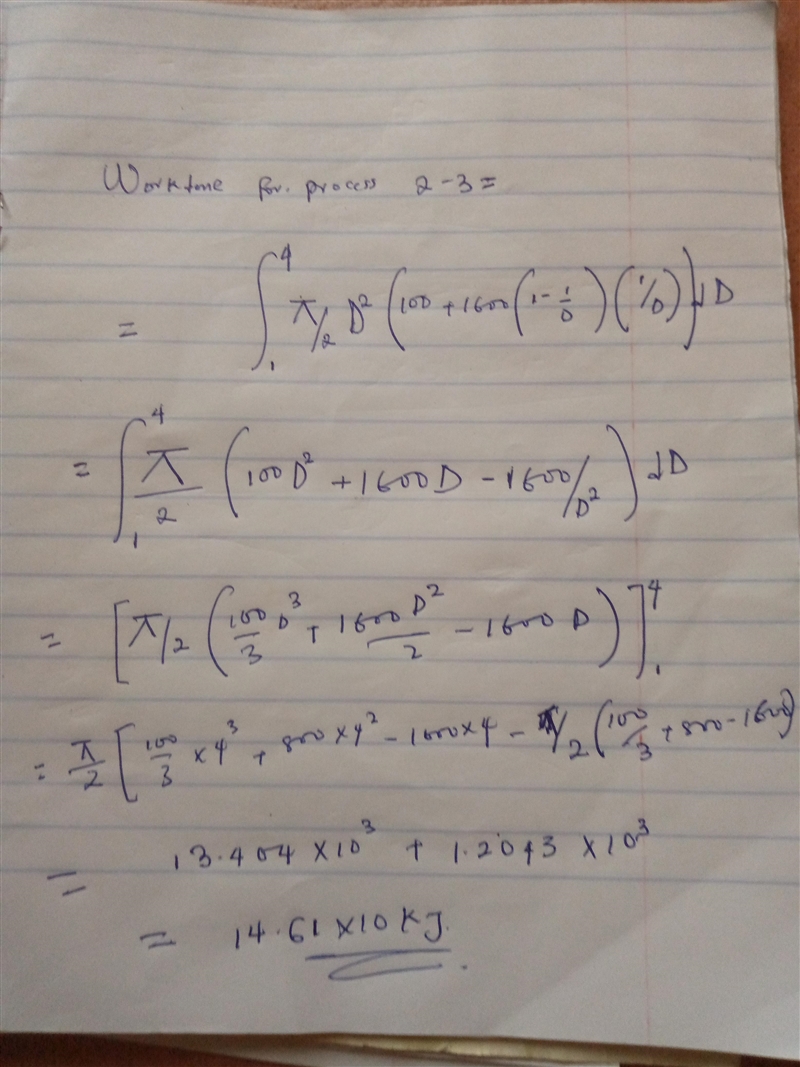 Workdone for. process 2-3=
= ∫₁⁴ π/2 D² (100 + 1600 (1 - 1/D) (1/D)) dD
= ∫₁⁴ π/2 (100D² + 1600D - 1600/D²) dD
= [π/2 (100/3 D³ + 1600D²/2 - 1600 D)]₁⁴
= π/2 [100/3 × 4³ + 800 × 4² - 1600×4 - π/2 (100/3 + 800 - 1600)
= 13.404 ×10³ + 1.2043 ×10³
= 14.61 ×10 KJ.